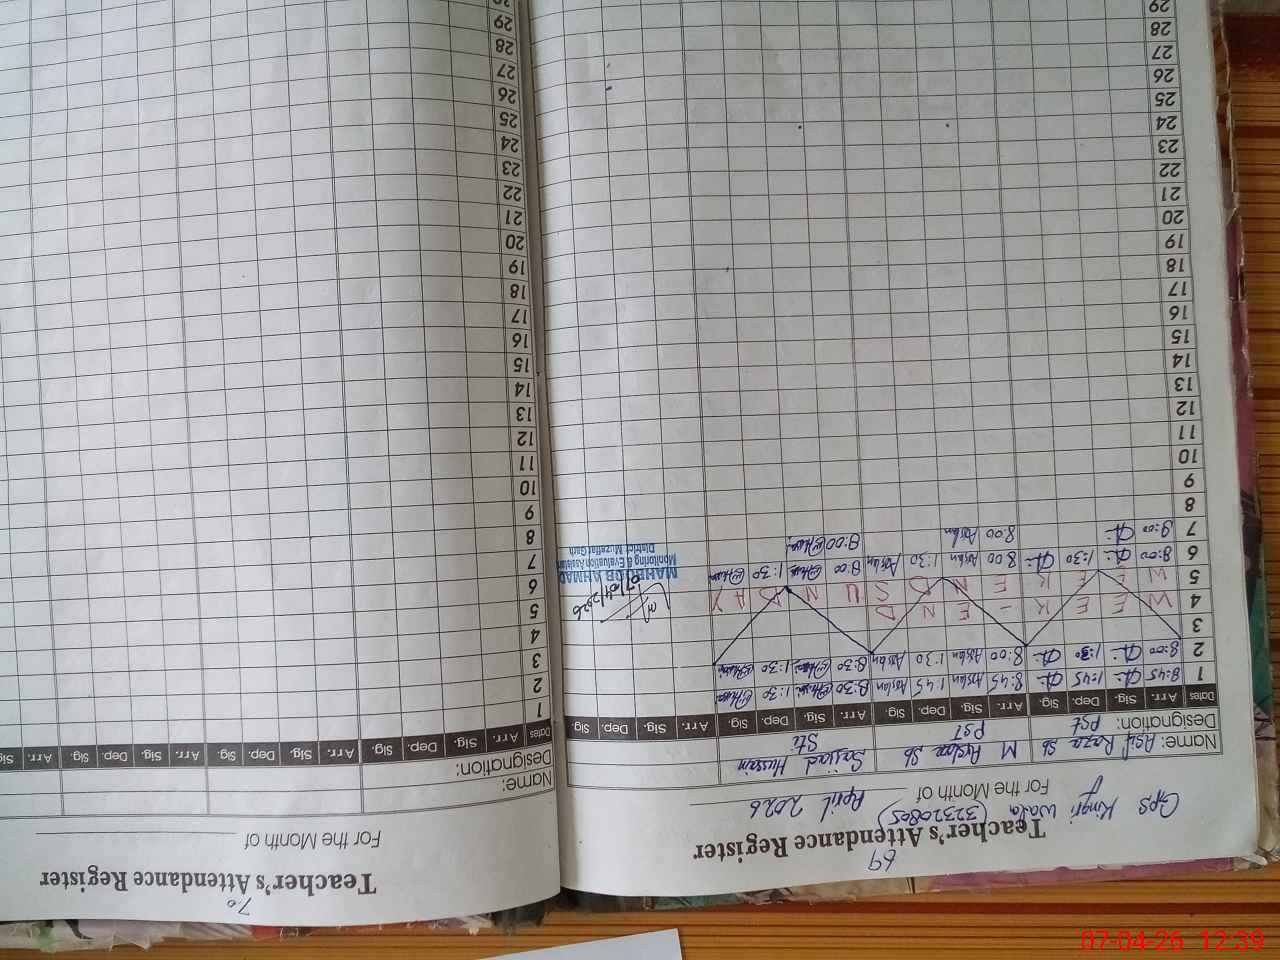 69
Teacher's Attendance Register
GPS Kingri Wala (32320805)
For the Month of April 2026
Name: Asif Raza Sb M Arslan Sb Sajjad Hussain
Designation: PST PST
Dates Arr. Sig. Dep. Sig. Arr. Sig. Dep. Sig. Arr. Sig. Dep. Sig. Arr. Sig. Dep. Sig.
1 8:45 1:45 8:45 Arslan 1:45 Arslan 8:30 1:30
2 8:00 1:30 8:00 Arslan 1:30 Arslan 8:30 1:30
3
4 W E E K - E N D
5 W E E K E N D S U N D A Y
6 8:00 1:30 8:00 Arslan 1:30 Arslan 8:00 1:30
7 8:00 8:00 Arslan 8:00
8
9
10
11
12
13
14
15
16
17
18
19
20
21
22
23
24
25
26
27
28
29
07/04/2026
MAHBOOB AHMAD
Monitoring & Evaluation Assistant
District Muzaffar Garh
70
Teacher's Attendance Register
For the Month of
Name:
Designation:
Dates Arr. Sig. Dep. Sig. Arr. Sig. Dep. Sig. Arr. Sig. Dep. Sig. Arr. Sig.
1
2
3
4
5
6
7
8
9
10
11
12
13
14
15
16
17
18
19
20
21
22
23
24
25
26
27
28
29
07-04-26 12:39